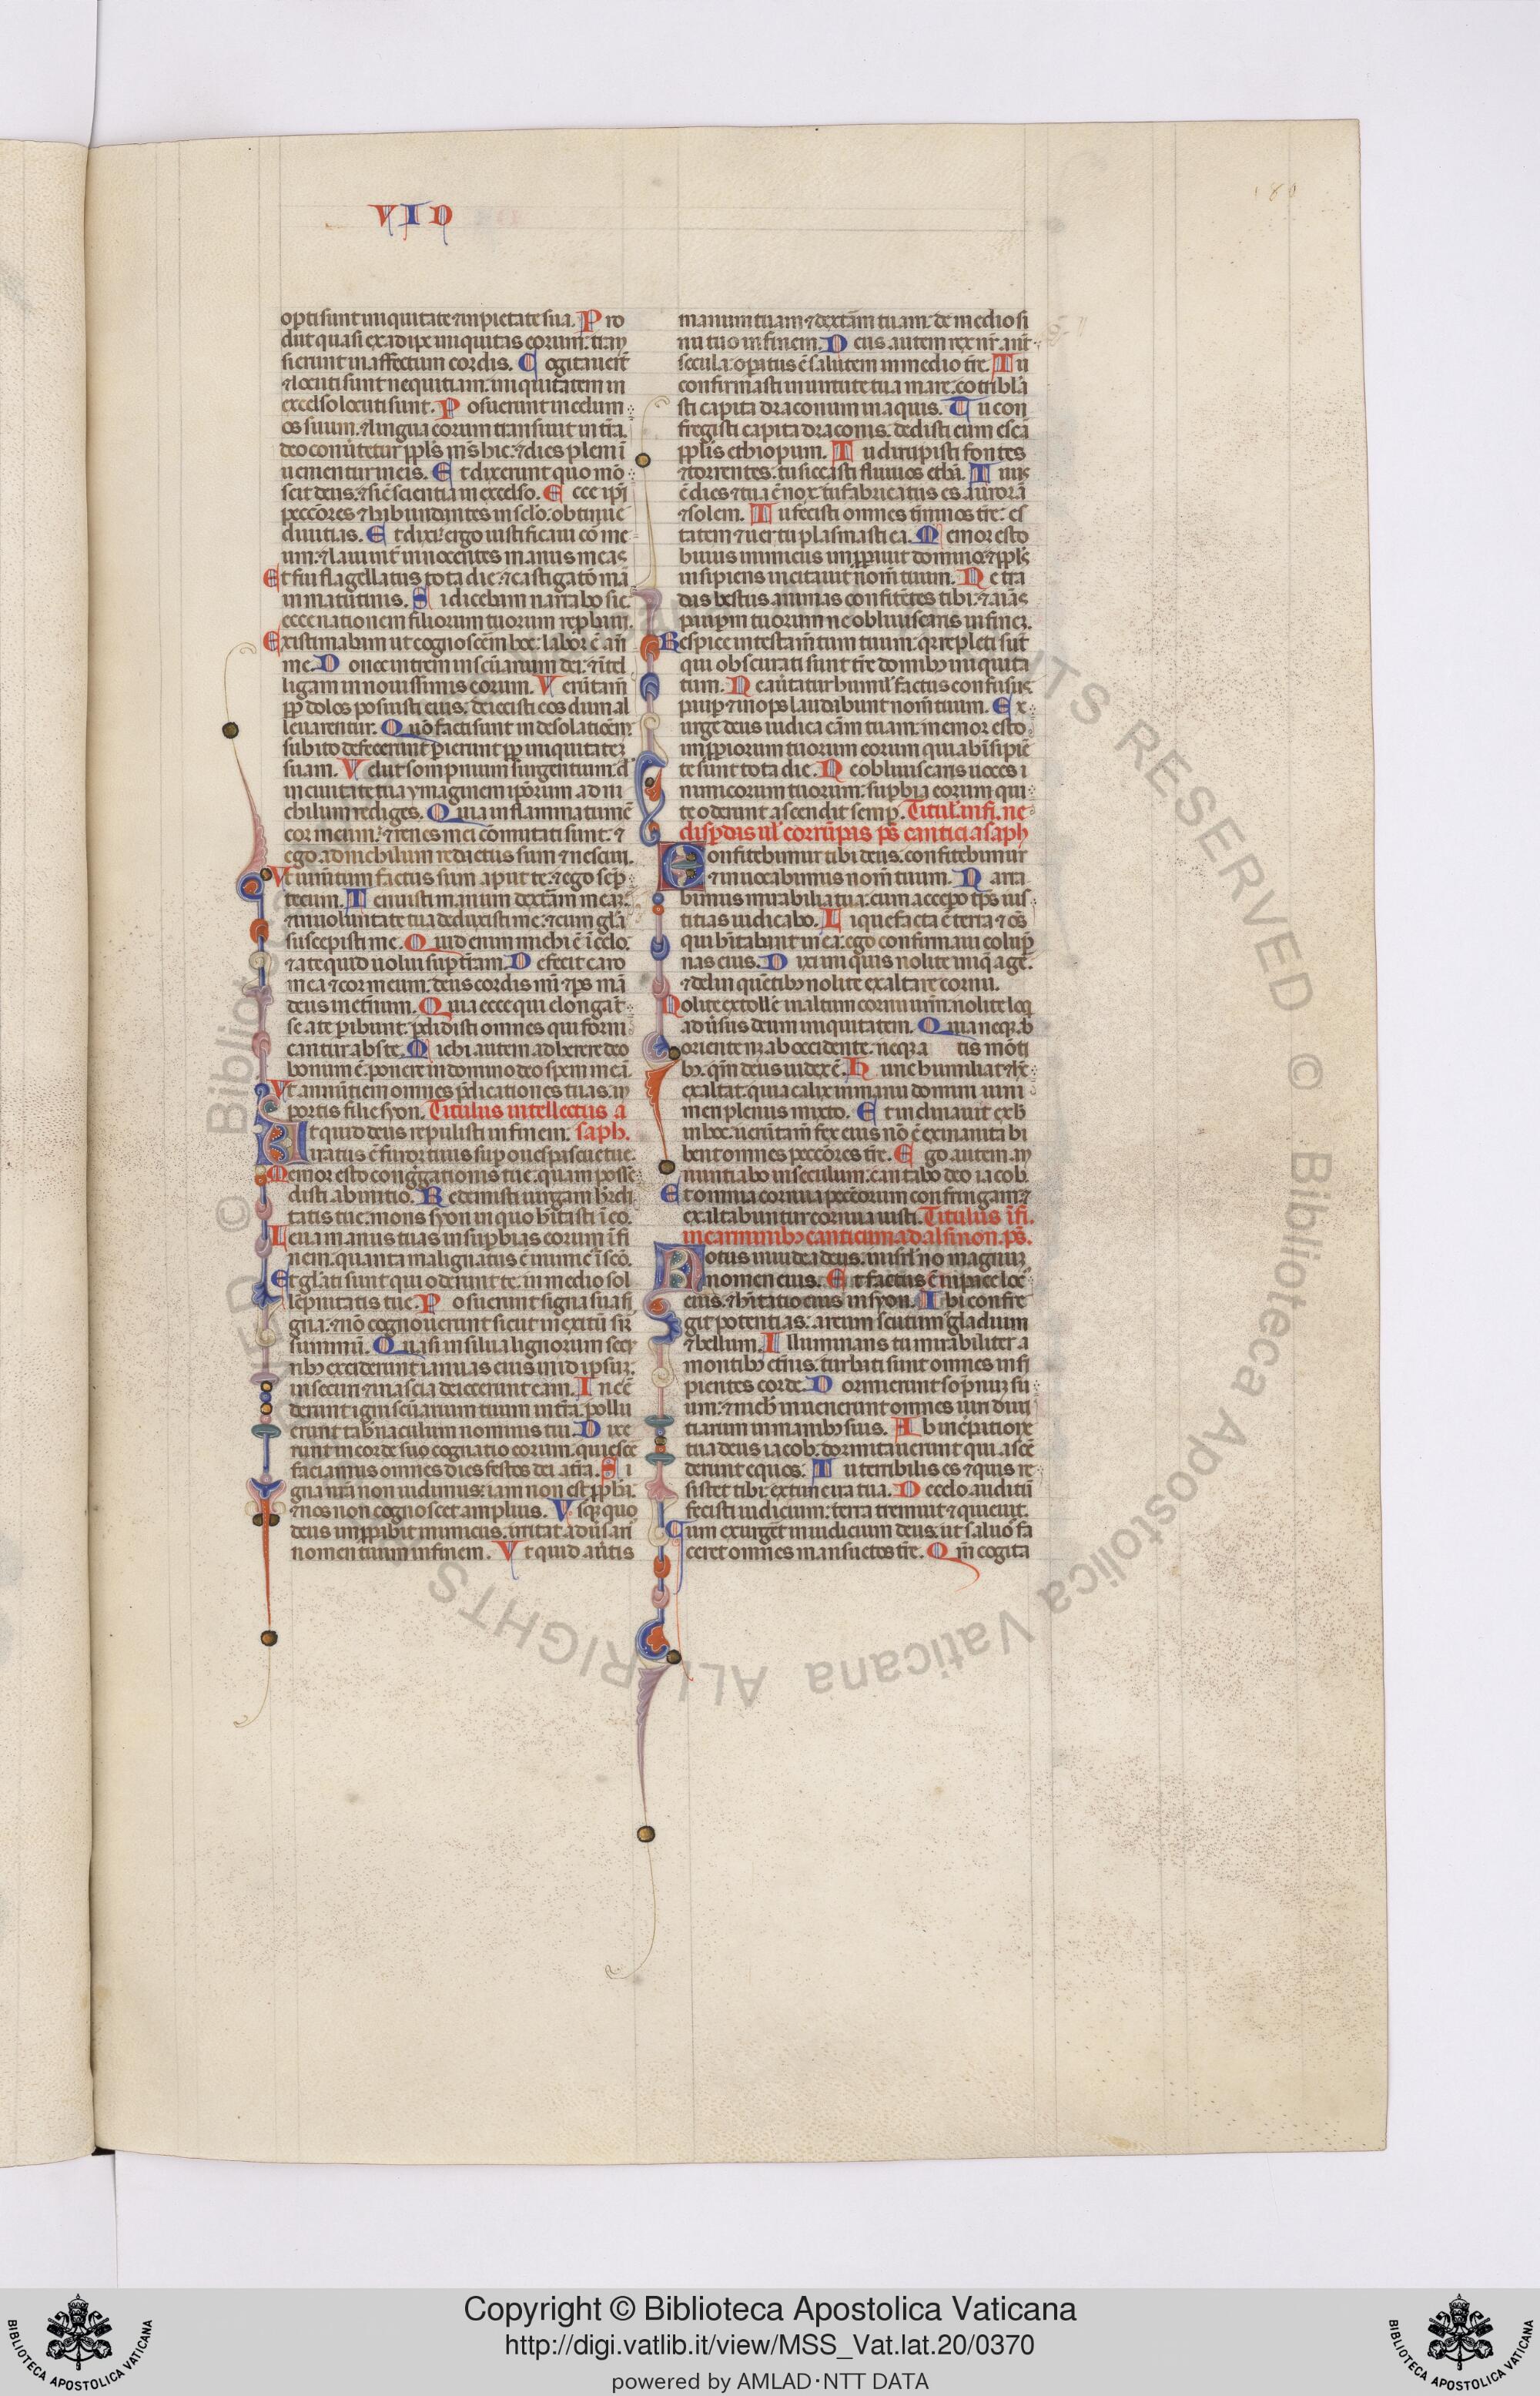 VID
180
opti sunt iniquitate ⁊ impietate sua. Pro
diit quasi ex adipe iniquitas eorum: trans
sierunt in affectum cordis. Cogitauer̃t
⁊ locuti sunt nequitiam: iniquitatem in
excelso locuti sunt. Posuerunt in celum
os suum: ⁊ lingua eorum transiuit in tr̃a.
deo conũtetur ppls̃ m̃s hic: ⁊ dies pleni ĩ
uenientur in eis. Et dixerunt quo mõ
scit deus: ⁊ si ẽ scientia in excelso. Ecce ip̃i
peccõres ⁊ habundantes in sclo: obtinue
diuitias. Et dixi: ergo iustificaui cõ me
um: ⁊ laui int̃ innocentes manus meas
Et fui flagellatus tota die: ⁊ castigatõ mã
in matutinis. Si dicebam narrabo sic:
ecce nationem filiorum tuorum reprbaui.
Existimabam ut cognoscẽm hoc: labor ẽ añ
me. Donec intrem in scũarium dei: ⁊ ĩtel
ligam in nouissimis eorum. Verũtam̃
pp dolos posuisti eius: deiecisti eos dum al
leuarentur. Quõ facti sunt in desolatioẽm:
subito defecerunt perierunt pp iniquitatez
suam. Velut sompnium surgentium: d
in ciuitate tua ymaginem ipõrum ad ni
chilum rediges. Quia inflammatum ẽ
cor meum: ⁊ renes mei cõmutati sunt: ⁊
ego ad nichilum redactus sum ⁊ nesciui.
Vt ium̃tum factus sum aput te: ⁊ ego sẽp
tecum. Tenuisti manum dextãm meaz:
⁊ in uoluntate tua deduxisti me: ⁊ cum gl̃a
suscepisti me. Quid enim michi ẽ ĩ celo:
⁊ a te quid uolui sup tr̃am. Defecit caro
mea ⁊ cor meum: deus cordis mĩ ⁊ ps mã
deus in et̃num. Quia ecce qui elongãt
se a te peribunt: pdidisti omnes qui forni
cantur abs te. Michi autem adherere deo
bonum ẽ: ponere in domino deo spem meã.
Vt annũtiem omnes pdicationes tuas: in
portis filie syon. Titulus intellectus a
Vt quid deus repulisti in finem: saph.
iratus ẽ furor tuus sup oues pascue tue.
Memor esto cong̃gationis tue: quam posse
disti ab initio. Redemisti uirgam hr̃edi
tatis tue: mons syon in quo hĩtasti ĩ eo.
Leua manus tuas in supbias eorum ĩ fi
nem: quanta malignatus ẽ inimic̃ ĩ scõ.
Et gl̃ati sunt qui oderunt te: in medio sol
lẽpnitatis tue. Posuerunt signa sua si
gna: ⁊ nõ cognouerunt sicut in exitũ sup
summũ. Quasi in silua lignorum secu
ribꝫ exciderunt ianuas eius in id ipsuz:
in securi ⁊ in ascia deiecerunt eam. Incẽ
derunt igni scũarium tuum: in tr̃a pollu
erunt tab̃naculum nominis tui. Dixe
runt in corde suo cognatio eorum: quiesce
faciamus omnes dies festos dei a tr̃a. Si
gna nr̃a non uidimus: iam non est ppha:
⁊ nos non cognoscet amplius. Vsqꝫ quo
deus impperabit inimicus: irritat aduersari
nomen tuum in finem. Vt quid aũtis
manum tuam ⁊ dextãm tuam: de medio si
nu tuo in finem. Deus autem rex nr̃ ant̃
secula: opatus ẽ salutem in medio tr̃e. Tu
confirmasti in uirtute tua mare: cõtribula
sti capita draconum in aquis. Tu con
fregisti capita draconis: dedisti eum escã
pplis ethiopum. Tu dirupisti fontes
⁊ torrentes: tu siccasti fluuios ethã. Tuus
ẽ dies ⁊ tua ẽ nox: tu fabricatus es aurorã
⁊ solem. Tu fecisti omnes t̃minos tr̃e: es
tatem ⁊ uer tu plasmasti ea. Memor esto
huius inimicus impperauit domino: ⁊ ppls̃
insipiens incitauit nom̃ tuum. Ne tra
das bestiis animas confitẽtes tibi: ⁊ aĩas
paupum tuorum ne obliuiscaris in finez.
Respice in testam̃tum tuum: qr repleti sũt
qui obscurati sunt tr̃e domibꝫ iniquita
tum. Ne aũtatur humil̃ factus confusus:
paup ⁊ inops laudabunt nom̃ tuum. Ex
urge deus iudica cãm tuam: memor esto
impperiorum tuorum eorum qui ab ĩsipiẽ
te sunt tota die. Ne obliuiscaris uoces i
nimicorum tuorum: supbia eorum qui
te oderunt ascendit semp. Titul. in fi. ne
dispdas ul̃ corrũpas ps̃ cantici asaph
Confitebimur tibi deus: confitebimur
⁊ inuocabimus nom̃ tuum. Narra
bimus mirabilia tua: cum accepo tps̃ ius
titias iudicabo. Liquefacta ẽ terra ⁊ oẽs
qui hĩtabunt in ea: ego confirmaui colup
nas eius. Dixi iniquis nolite iniq̃ age:
⁊ delinquẽtibꝫ nolite exaltare cornu.
Nolite extolle in altum cornu urm̃: nolite loq
aduersus deum iniquitatem. Quia neqꝫ ab
oriente neqꝫ ab occidente: neqꝫ a tis mõti
bꝫ: qm̃ deus iudex ẽ. Hunc humiliat ⁊ hc̃
exaltat: quia calix in manu domini uini
meri plenus mixto. Et inclinauit ex h̃
in hoc: uerũtam̃ fex eius nõ ẽ exinanita bi
bent omnes peccõres tr̃e. Ego autem an
nuntiabo in seculum: cantabo deo iacob.
Et omnia cornua peccõrum confringam: ⁊
exaltabuntur cornua iusti. Titulus ĩ fi.
in carminibꝫ canticum ad assirios. ps̃.
Notus in iudea deus: in isrl̃ no magnuz
nomen eius. Et factus ẽ in pace locꝰ
eius: ⁊ hĩtatio eius in syon. Ibi confre
git potentias: arcum scutum gladium
⁊ bellum. Illuminans tu mirabiliter a
montibꝫ et̃nis: turbati sunt omnes insi
pientes corde. Dormierunt sopnuz su
um: ⁊ nich̃ inuenerunt omnes uiri diui
tiarum in manibꝫ suis. Ab incrẽpatione
tua deus iacob: dormitauerunt qui ascẽ
derunt equos. Tu terribilis es ⁊ quis re
sistet tibi: ex tunc ira tua. De celo auditũ
fecisti iudicium: terra tremuit ⁊ quieuit.
Cum exurget̃ in iudicium deus: ut saluõ fa
ceret omnes mansuetos tr̃e. Qm̃ cogita
© Biblioteca Apostolica Vaticana ALL RIGHTS RESERVED
Copyright © Biblioteca Apostolica Vaticana
http://digi.vatlib.it/view/MSS_Vat.lat.20/0370
powered by AMLAD·NTT DATA
BIBLIOTECA APOSTOLICA VATICANA
BIBLIOTECA APOSTOLICA VATICANA